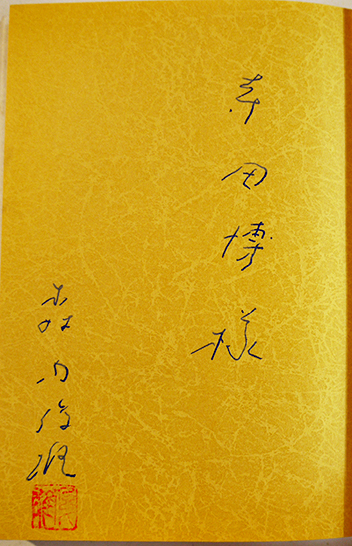 寺田博様
森内俊雄